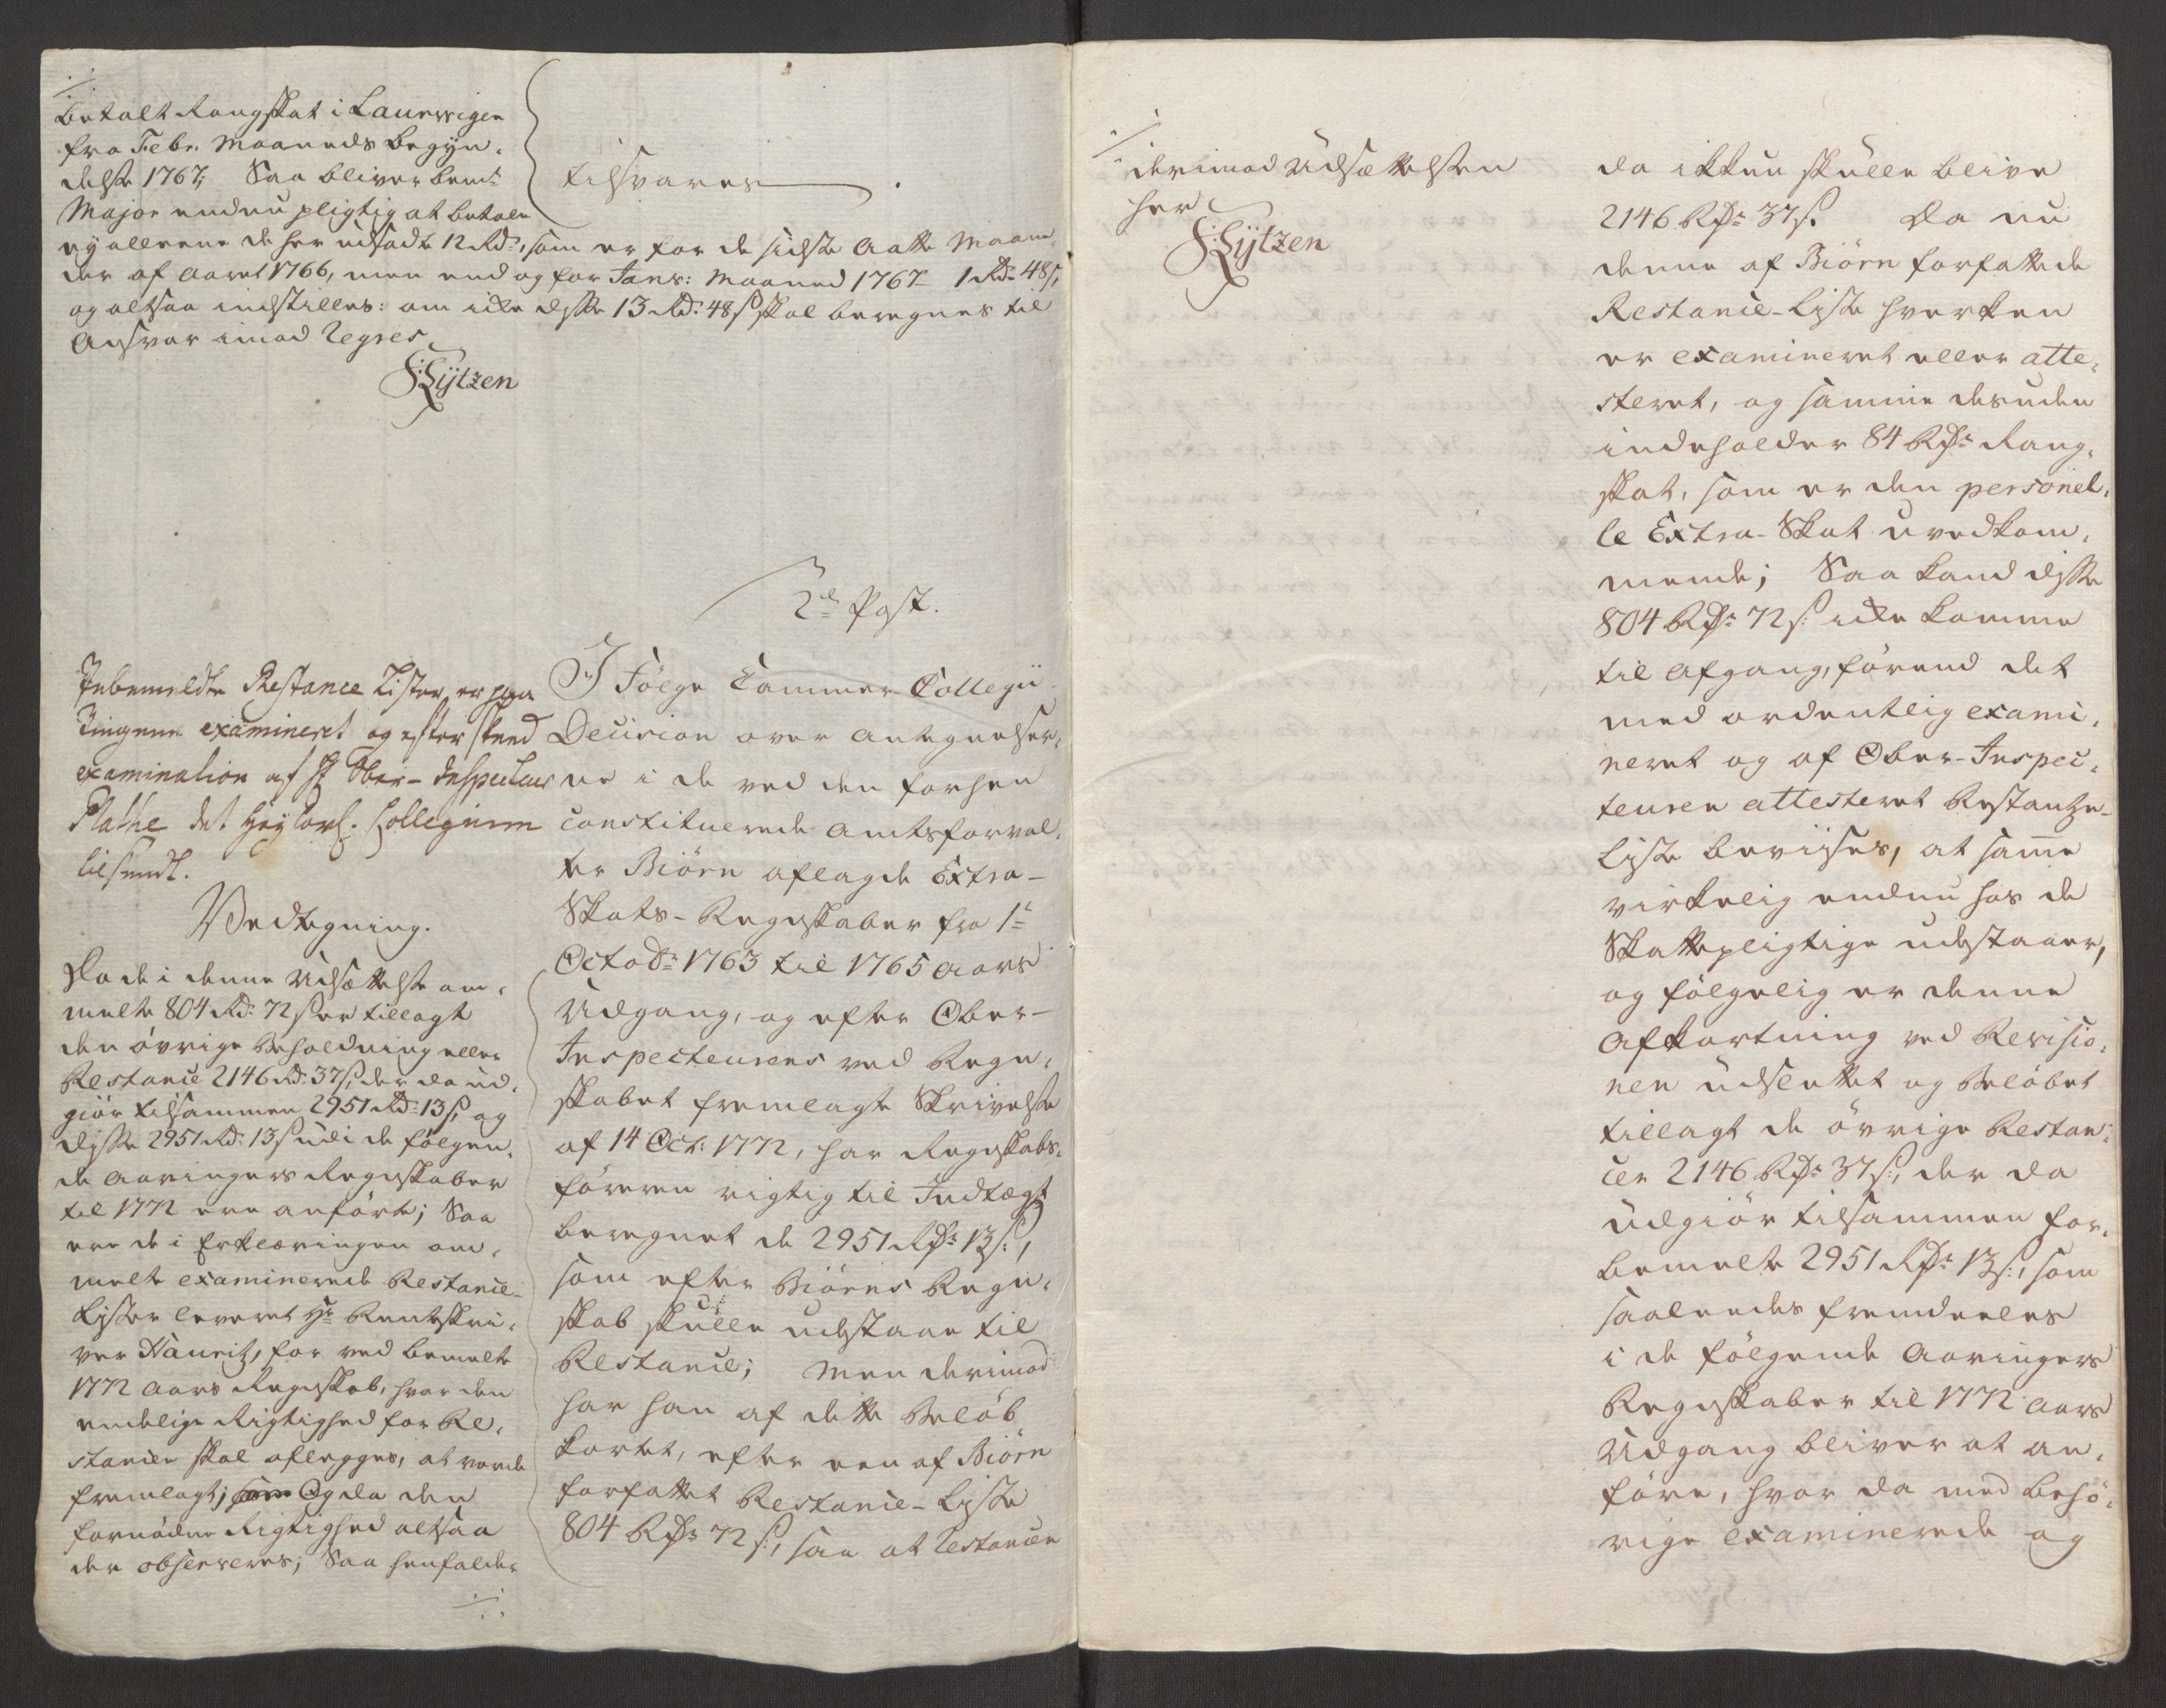 ./.
betalt Rangskat i Laurwigen
fra Febr. Maaneds Begyn-
delse 1767, Saa bliver bemte
Major endnu pligtig at betale
ey alleene de her udsadte 12 Rd., som er for de sidste Aatte Maane-
der af Aaret 1766, men end og for Janr: Maaned 1767 1 Rd. 48 s,
og altsaa indstilles: om icke disse 13 Rd. 48 s skal beregnes til
Ansvar imod Regres.
Lützen
tilsvares
2de Post.
Inbemeldte Restance Lister er paa
Tingene examineret og efter skeed
examination af Hr Ober-Inspecteur
Plathe det Høylovl. Collegium
tilsendt.
Vedtegning.
Da de i denne Udsættelse om-
melte 804 Rd. 72 s er tillagt
den øvrige Beholdning eller
Restance 2146 Rd. 37 s, der da ud-
giør tilsammen 2951 Rd. 13 s, og
disse 2951 Rd. 13 s udi de følgen-
de Aaringers Regnskaber
til 1772 ere anført; Saa
ere de i Erklæringen om-
melte examinerede Restance-
Lister leveret Hr Rentskri-
ver Hauritz, for ved bemelte
1772 Aars Regnskab, hvor den
endelige Rigtighed for Re-
stancen skal aflegges, at vorde
fremlagt; Og da den
fornødne Rigtighed altsaa
der observeres; Saa henfalder
./.
I Følge Cammer-Collegii
Decision over Antegnelser-
ne i de ved den forhen
constituerede Amtsforval-
ter Biörn aflagde Extra-
Skats-Regnskaber fra 1te
Octobr 1763 til 1765 Aars
Udgang, og efter Ober-
Inspecteurens ved Regn-
skabet fremlagte Skrivelse
af 14 Oct: 1772, har Regnskabs-
føreren rigtig til Indtægt
beregnet de 2951 Rdr 13 s:,
som efter Biörns Regn-
skab skulle udestaae til
Restance; Men derimod
har han af dette Beløb
kortet, efter een af Biörn
forfattet Restance-Liste
804 Rdr 72 s:, saa at Restancen
./.
derimod Udsættelsen
her
Lützen
da ikkun skulle blive
2146 Rdr 37 s. Da nu
denne af Biörn forfattede
Restance-Liste hverken
er examineret eller atte-
steret, og samme desuden
indeholder 84 Rdr Rang-
skat, som er den personel-
le Extra-Skat uvedkom-
mende; Saa kand disse
804 Rdr 72 s: icke komme
til Afgang, førend det
med ordentlig exami-
neret og af Ober-Inspec-
teuren attesteret Restantze-
Liste beviises, at samme
virkelig endnu hos de
Skattepligtige udestaaer,
og følgelig er denne
Afkortning ved Revisio-
nen udslettet og Beløbet
tillagt de øvrige Restan-
cer 2146 Rdr 37 s:, der da
udgiør tilsammen for-
bemelte 2951 Rdr 13 s:, som
saaleedes fremdeeles
i de følgende Aaringers
Regnskaber til 1772 Aars
Udgang bliver at an-
føre, hvor da med behø-
rige examinerede og